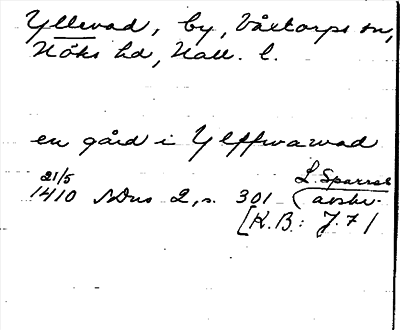 Yllevad, by, Våxtorps sn,
Höks hd, Hall. l.
en gård i Ylffwawad
21/5 L. Sparres
1410 SDns 2, s. 301 (avskr.
[K.B.: J. 7/